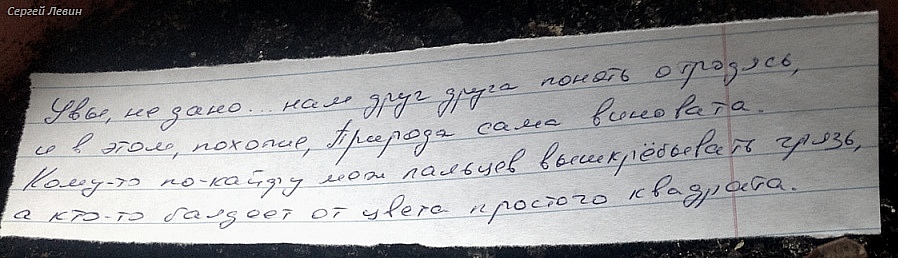 Сергей Левин
Увы, не дано... нам друг друга понять отродясь,
и в этом, похопие, Природа сама виновата.
Кому-то по-кайфу меж пальцев вышкрёбывать грязь,
а кто-то балдеет от цвета простого квадрата.